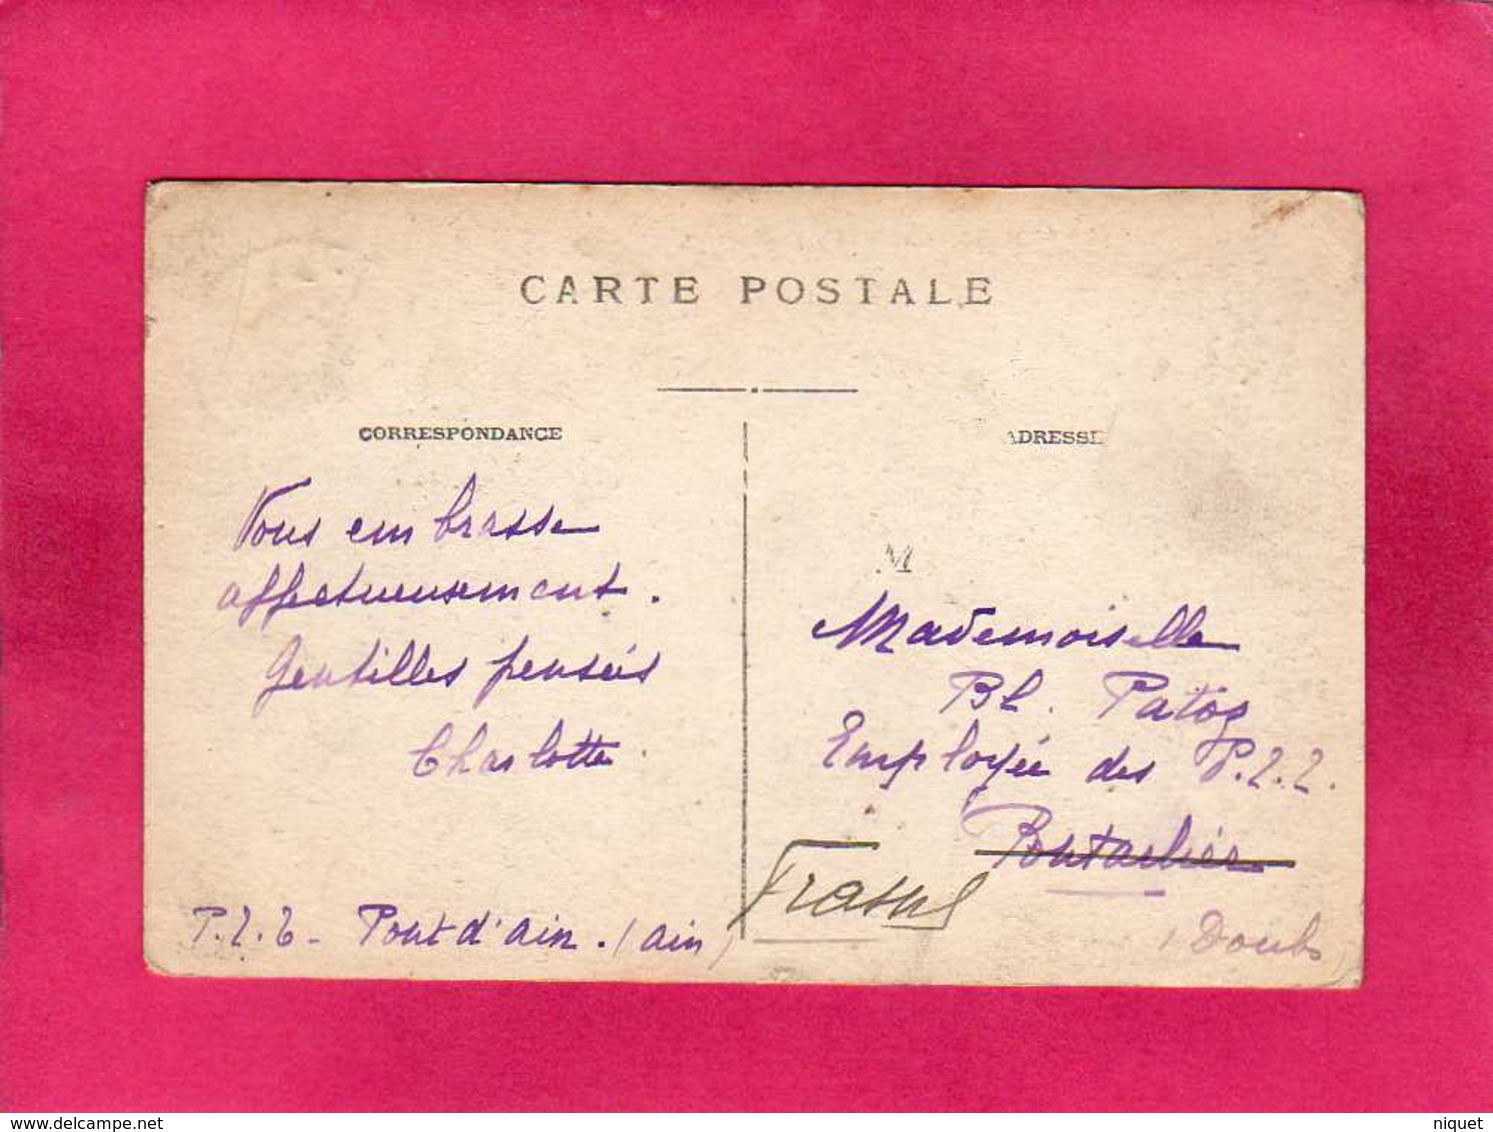 CARTE POSTALE
CORRESPONDANCE
Vous embrasse
affectueusement.
Gentilles pensées
Charlotte.
P.T.T - Pont d'ain. (ain)
ADRESSE
M
Mademoiselle
Bl. Patoz
Employée des P.T.T.
Pontarlier
Frasne
(Doubs)
www.delcampe.net
niquet